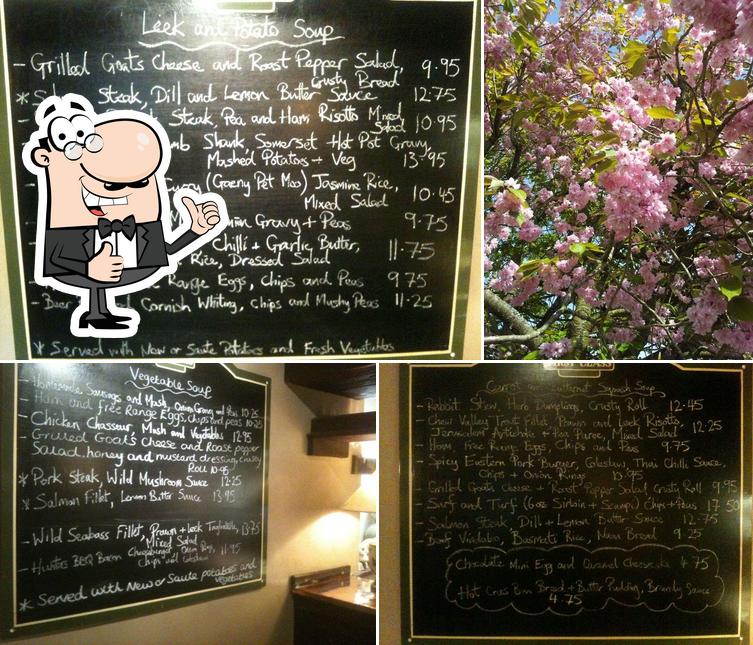 Leek and Potato Soup
- Grilled Goats Cheese and Roast Pepper Salad, 9.95
Crusty Bread
* Steak, Dill and Lemon Butter Sauce 12.75
Steak, Pea and Ham Risotto Mixed 10.95
Salad
Shank, Somerset Hot Pot Gravy
Mashed Potatoes + Veg 13.95
Curry (Gaeng Pet Moo) Jasmine Rice, 10.45
Mixed Salad
Gravy + Peas 9.75
Chilli + Garlic Butter, 11.75
Rice, Dressed Salad
Range Eggs, Chips and Peas 9.75
- Beer Cornish Whiting, Chips and Mushy Peas 11.25
* Served with New or Saute Potatoes and Fresh Vegetables
Vegetable Soup
- Homemade Sausages and Mash, Onion Gravy and Peas 10.25
- Ham and free Range Eggs, Chips and peas 10.25
- Chicken Chasseur, Mash and Vegetables 12.95
- Grilled Goat's Cheese and Roast pepper
Salad, honey and mustard dressing, crusty
Roll 10.95
* Pork Steak, Wild Mushroom Sauce 12.25
* Salmon Fillet, Lemon Butter Sauce 13.95
- Wild Seabass Fillet, Prawn + Leek Tagliatelle, 13.75
Mixed Salad
- Hunters BBQ Bacon Cheeseburger, Onion Rings, 11.95
Chips and Coleslaw
* Served with New or Saute potatoes and
vegetables
FIRST CLASS
Carrot and Butternut Squash Soup
- Rabbit Stew, Herb Dumplings, Crusty Roll 12.45
- Chew Valley Trout Fillet, Prawn and Leek Risotto,
Jerusalem Artichoke + Pea Puree, Mixed Salad 12.25
- Ham, Free Range Eggs, Chips and Peas 9.75
- Spicy Eastern Pork Burger, Coleslaw, Thai Chilli Sauce,
Chips + Onion Rings 10.95
- Grilled Goats Cheese + Roast Pepper Salad Crusty Roll 9.95
- Surf and Turf (6oz Sirloin + Scampi) Chips + Peas 17.50
- Salmon Steak, Dill + Lemon Butter Sauce 12.75
- Beef Vindaloo, Basmati Rice, Naan Bread 9.25
Chocolate Mini Egg and Caramel Cheesecake 4.75
Hot Cross Bun Bread + Butter Pudding, Brandy Sauce
4.75